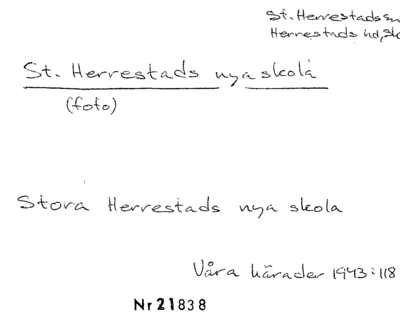 St. Herrestads
Herrestads hd,
St. Herrestads nya skola
(foto)
Stora Herrestads nya skola
Våra härader 1943:118
Nr 21838